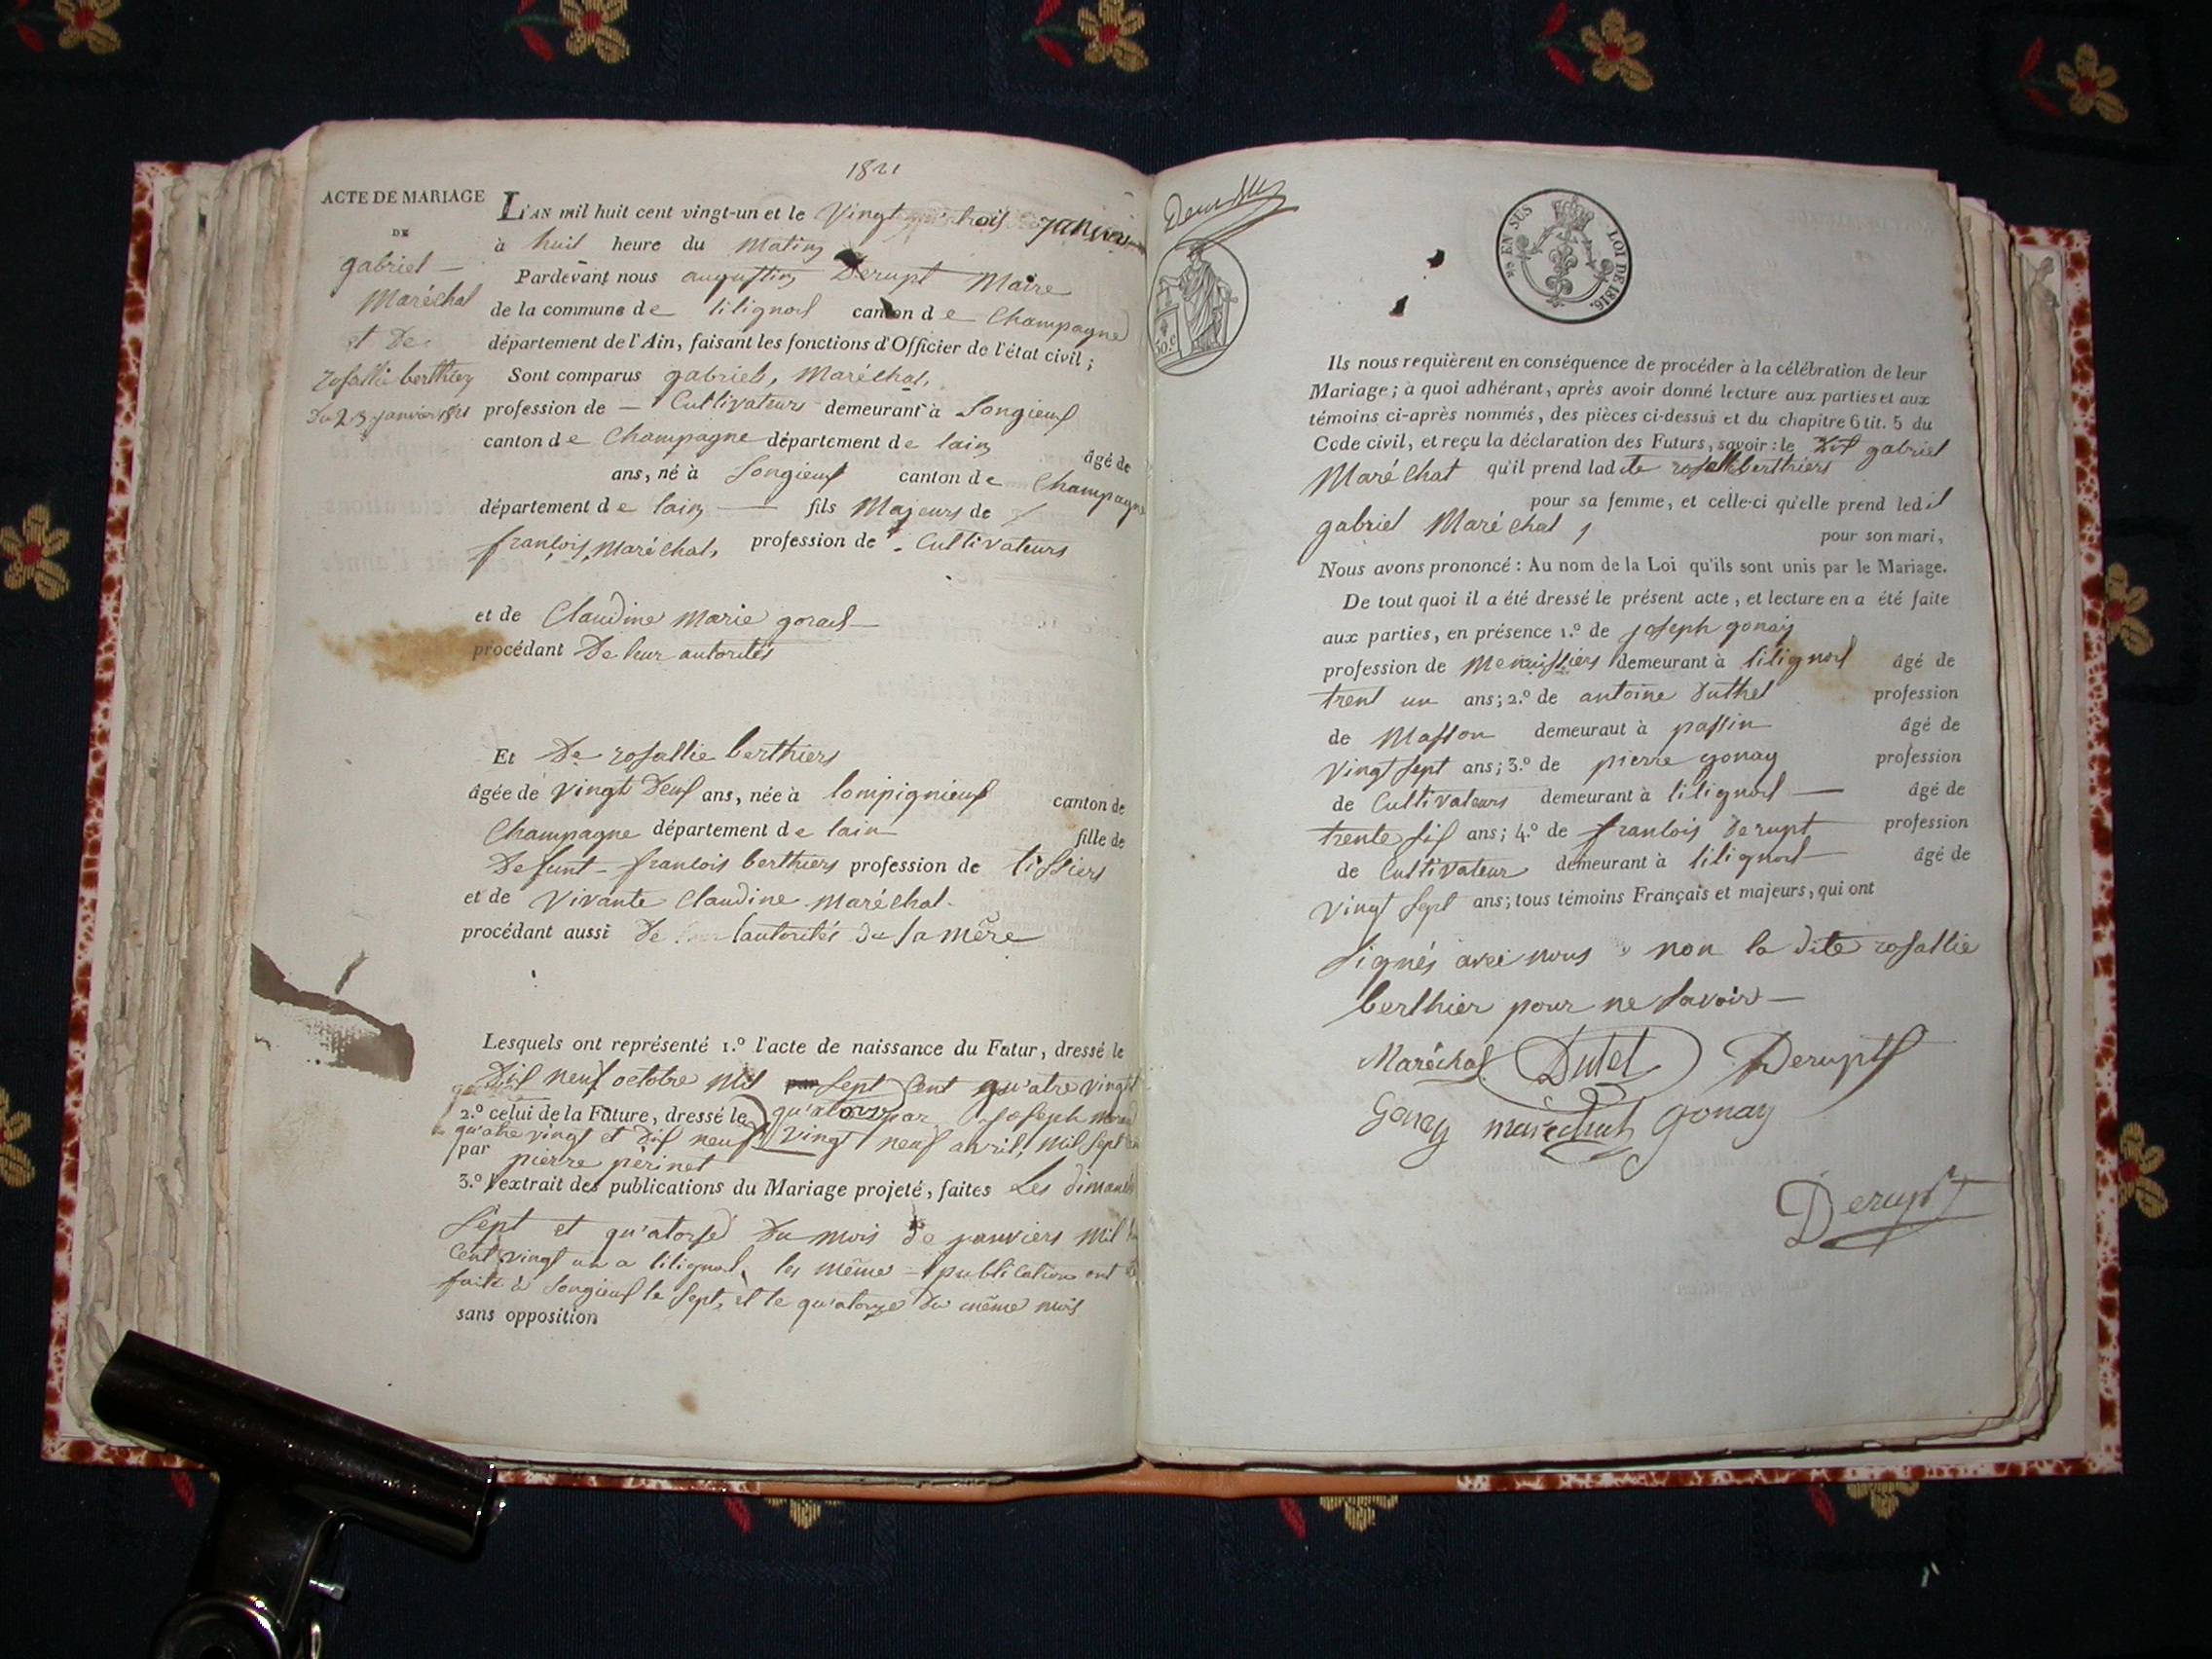 1821
ACTE DE MARIAGE
DE
gabriel
Maréchal
et De
rosallie berthier
Du 23 janvier 1821
L'AN mil huit cent vingt-un et le Vingt trois janvier
à huit heure du Matin
Pardevant nous augustin Derupt Maire
de la commune de lilignod canton de Champagne
département de l'Ain, faisant les fonctions d'Officier de l'état civil;
Sont comparus gabriel, Maréchal,
profession de – Cultivateurs demeurant à Songieux
canton de Champagne département de lain âgé de
ans, né à Songieux canton de Champagne
département de lain — fils Majeurs de
françois, Maréchal, profession de Cultivateurs
et de Claudine Marie
procédant De leur autorités
Et De rosallie berthiers
âgée de vingt Deux ans, née à lompignieux canton de
Champagne département de lain fille de
Defunt francois berthiers profession de tissiers
et de Vivante Claudine Maréchal
procédant aussi De lautorités de sa mère
Lesquels ont représenté 1.º l'acte de naissance du Futur, dressé le
Dix neuf octobre Mil sept Cent qu'atre vingt
qu'atorze par joseph
2.º celui de la Future, dressé le vingt neuf avril, Mil sept
qu'atre vingt et dix neuf
par pierre périnet
3.º l'extrait des publications du Mariage projeté, faites Les dimanches
Sept et qu'atorze Du mois de janviers Mil
Cent vingt un a lilignod, les même publications ont
faite à Songieux le sept, et le qu'atorze Du même mois
sans opposition
EN SUS
LOI DE 1816.
50.c
Ils nous requièrent en conséquence de procéder à la célébration de leur
Mariage; à quoi adhérant, après avoir donné lecture aux parties et aux
témoins ci-après nommés, des pièces ci-dessus et du chapitre 6 tit. 5 du
Code civil, et reçu la déclaration des Futurs, savoir: le Dit gabriel
Maréchal qu'il prend ladite rosallie berthiers
pour sa femme, et celle-ci qu'elle prend ledit
gabriel Maréchal,
pour son mari,
Nous avons prononcé: Au nom de la Loi qu'ils sont unis par le Mariage.
De tout quoi il a été dressé le présent acte, et lecture en a été faite
aux parties, en présence 1.º de joseph gonay
profession de Menuissiers demeurant à lilignod âgé de
trent un ans; 2.º de antoine Duthel profession
de Masson demeurant à passin âgé de
Vingt sept ans; 3.º de pierre gonay profession
de Cultivateurs demeurant à lilignod — âgé de
trente six ans; 4.º de francois Derupt profession
de Cultivateur demeurant à lilignod — âgé de
Vingt Sept ans; tous témoins Français et majeurs, qui ont
Signés avec nous non la dite rosallie
berthier pour ne savoir —
Maréchal Dutel Derupt
Gonay marechal gonay
Derupt